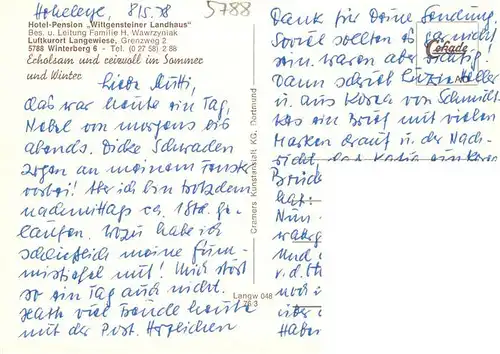 Hoheleye, 8/5.78
5788
Hotel-Pension „Wittgensteiner Landhaus"
Bes. u. Leitung Familie H. Wawrzyniak
Luftkurort Langewiese, Grenzweg 2
5788 Winterberg 6 - Tel. (0 27 58) 2 88
Erholsam und reizvoll im Sommer
und Winter
Liebe Mutti,
das war heute ein Tag,
Nebel von morgens bis
abends. Dicke Schwaden
zogen an meinem Fenster
vorbei! Aber ich bin trotzdem
nachmittags ca. 1 Std. ge-
laufen. Wozu habe ich
schließlich meine Gum-
mistiefel mit! Mich stört
so ein Tag auch nicht.
Hatte viel Freude heute
mit der Post. Herzlichen
Cramers Kunstanstalt KG, Dortmund
Langw 048
76 3
Dank für Deine Sendung
Soviel sollten es gar nicht
sein, waren aber
Dann schrieb
u. aus Korea von Schmidt.
Was ein Brief mit vielen
Marken drauf u. der Nach-
richt, das Katja einen
Brüde
hat!
Nun
wahrg
und
v. d.
noch
über
Haber
Cekade